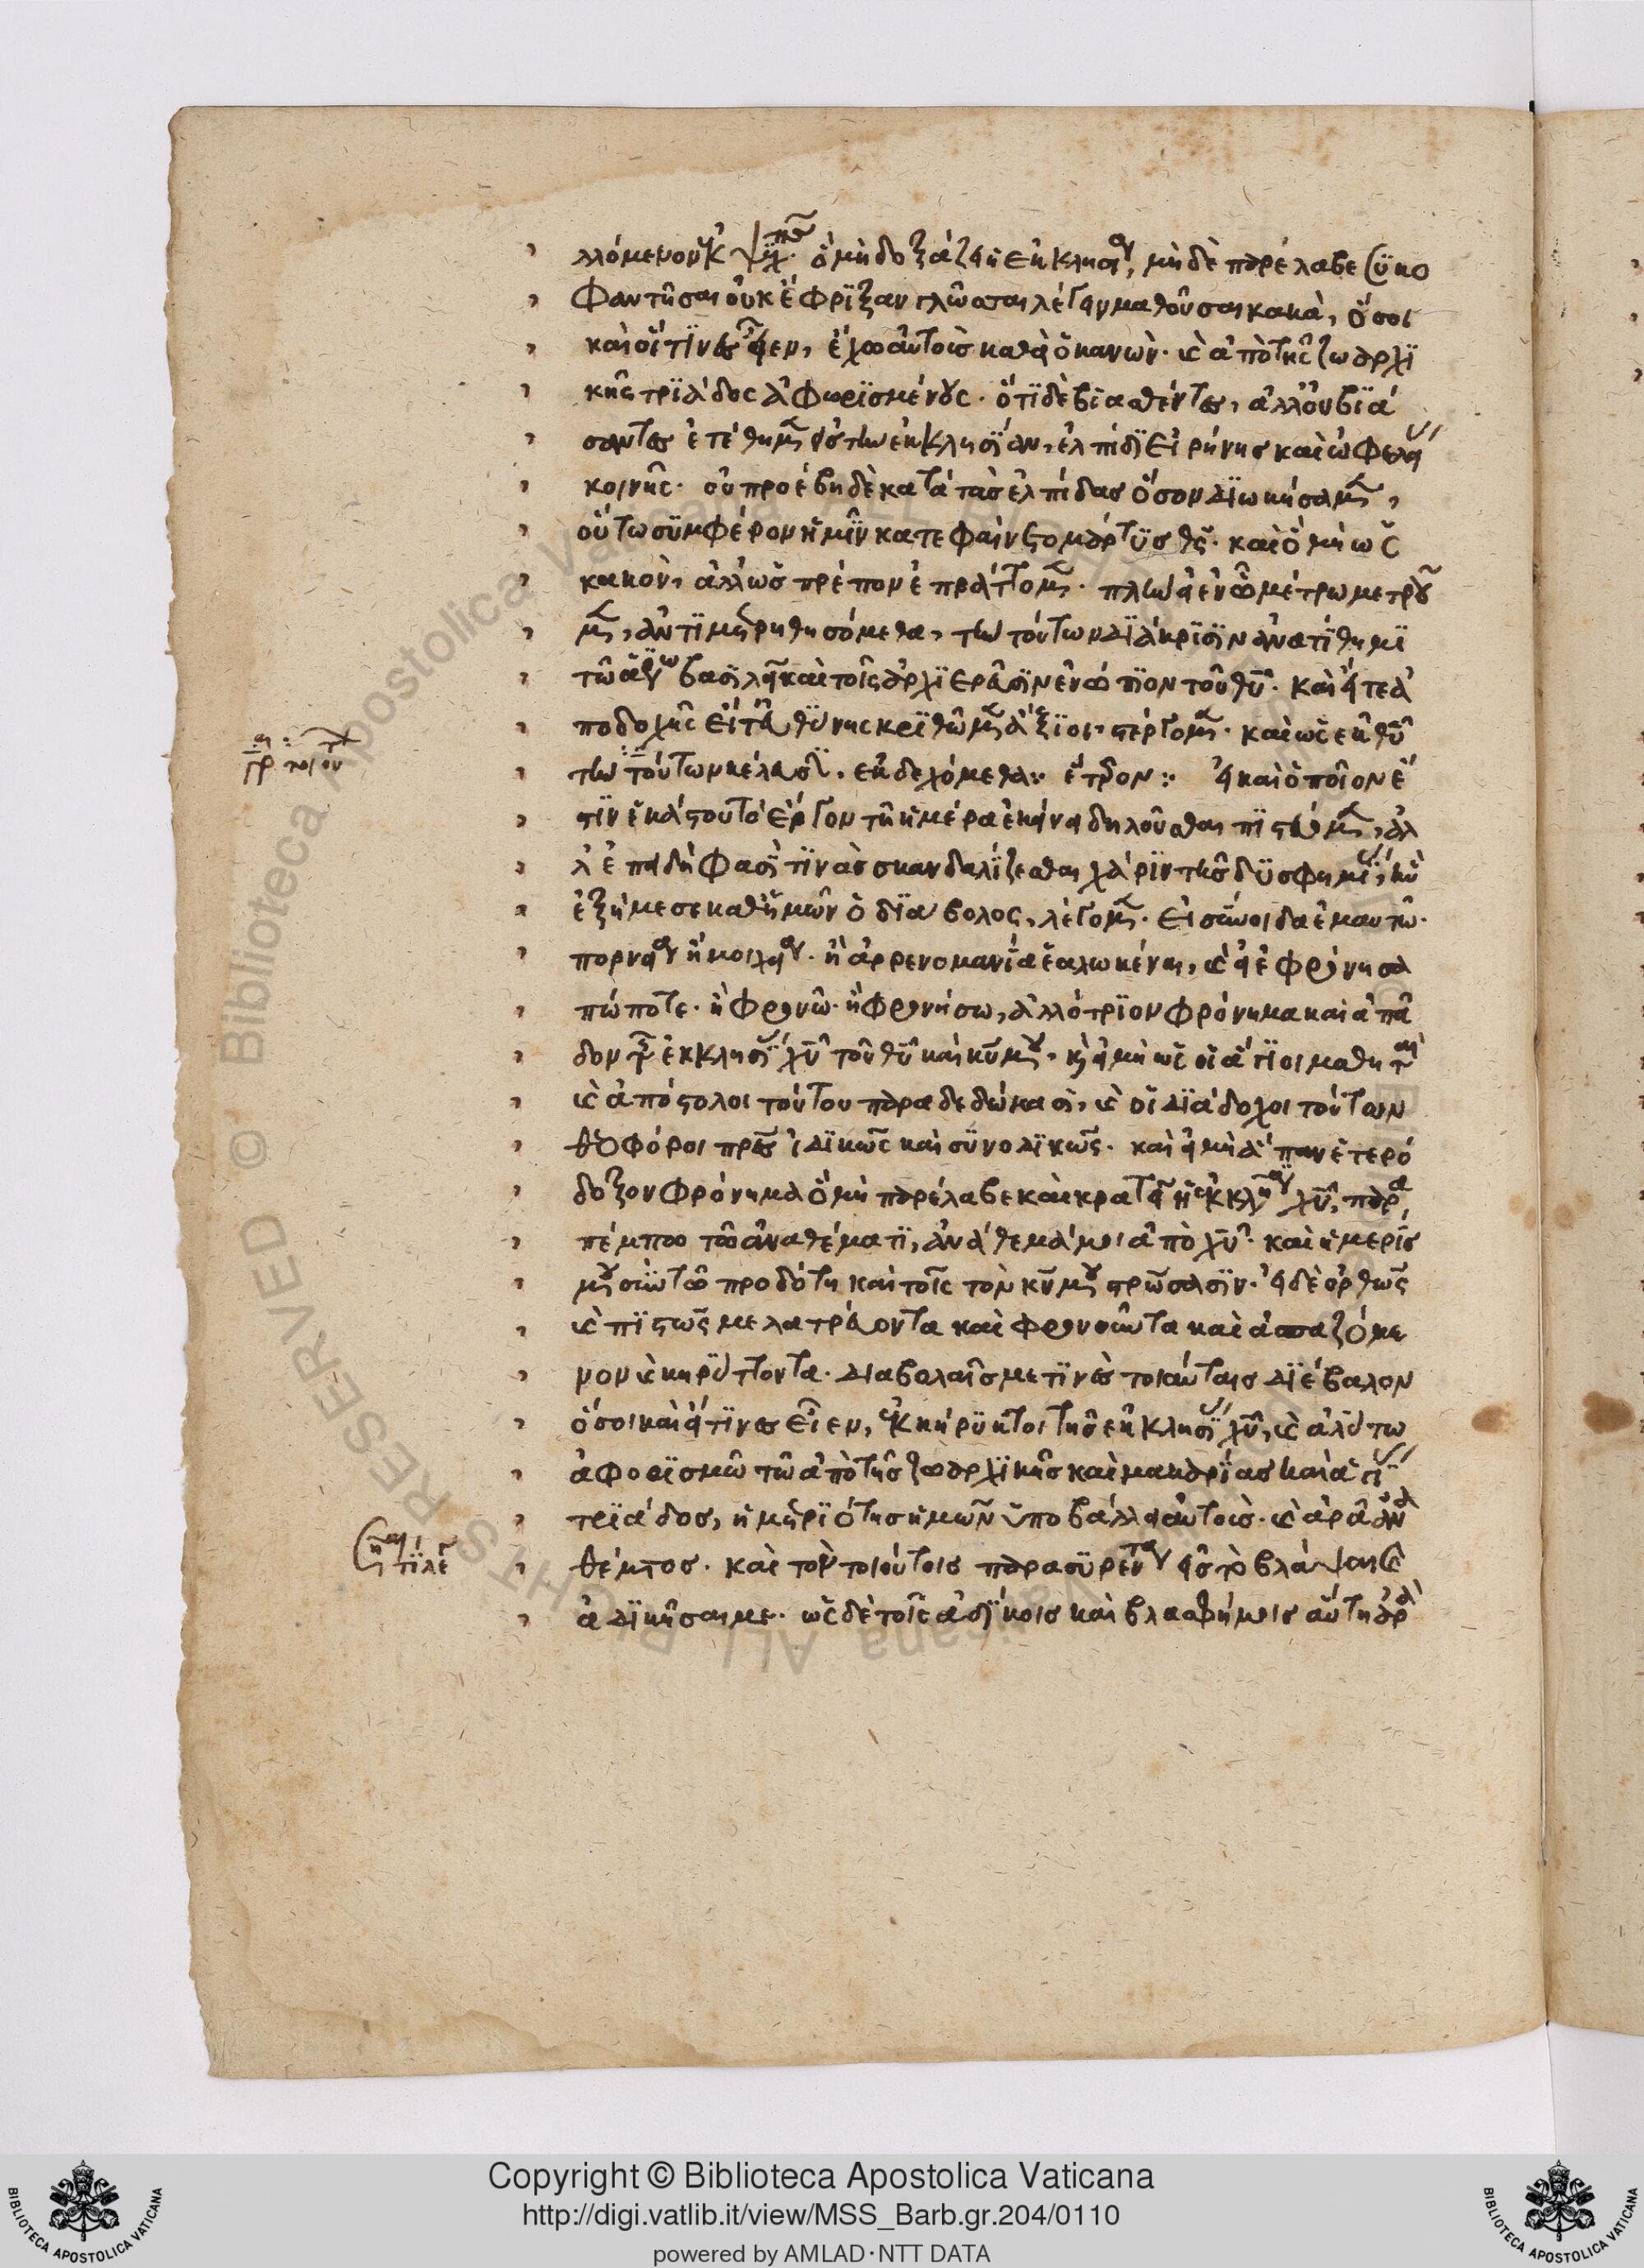 λλόμενον κ ψ ὁ μὴ δοξάζει ἡ ἐκκλησία, μὴ δὲ παρέλαβε συκο
φαντῆσαι οὐκ ἔφριξαν γλῶσσαι λέγειν μαθοῦσαι κακά, ὅσοι
καὶ οἵ τινες εἶεν, ἔχω αὐτοῖς καθὰ ὁ κανών. καὶ ἀπὸ τῆς ζωαρχι
κῆς τριάδος ἀφωρισμένους. ὅτι δὲ βιασθέντες, ἀλλ' οὐ βιά
σαντες ἐτέθημεν εἰς τὴν ἐκκλησίαν, ἐλπίδι εἰρήνης καὶ ὠφελείας
κοινῆς. οὐ προέβη δὲ κατὰ τὰς ἐλπίδας ὅσον διωκήσαμεν,
οὕτω συμφέρον ἡμῖν κατεφαίνετο μάρτυς θεός. καὶ ὁ μὴ ὡς
κακόν, ἀλλ' ὡς πρέπον ἐπράττομεν. πλὴν εἰ ἐν ᾧ μέτρω μετροῦ
μεν, ἀντιμετρηθησόμεθα, τὴν τούτων διάκρισιν ἀνατίθημι
τῶ ἁγίω βασιλεῖ καὶ τοῖς ἀρχιερεῦσιν ἐνώπιον τοῦ θεοῦ. καὶ εἴτε ἀ
ποδοχῆς εἴτε εὐθύνης κριθῶμεν ἄξιοι στέργομεν. καὶ ὡς ἐκ θεοῦ
τὴν τούτων κέλευσιν. ἐκδεχόμεθα :: ἕτερον :: εἰ καὶ ὁποῖον ἐ
στιν ἑκάστου τὸ ἔργον τῆ ἡμέρα ἐκείνη δηλοῦσθαι πιστεύομεν, ἀλ
λ' ἐπειδή φασί τινας σκανδαλίζεσθαι χάριν τῆς δυσφημίας, ἣν
ἐξήμεσε καθ' ἡμῶν ὁ διάβολος, λέγομεν. εἰ σύνοιδα ἐμαυτῶ.
πορνείαν ἢ μοιχείαν. ἢ ἀρρενομανία ἑαλωκέναι, καὶ εἰ ἐφρόνησα
πώποτε. ἢ φρονῶ. ἢ φρονήσω, ἀλλότριον φρόνημα καὶ ἀπᾶ
δον τῆς ἐκκλησίας χριστοῦ τοῦ θεοῦ καὶ κυρίου μου. καὶ εἰ μὴ ὡς οἱ ἅγιοι μαθηταὶ
καὶ ἀπόστολοι τούτου παραδεδώκασι, καὶ οἱ διάδοχοι τούτων
θεοφόροι πατέρες ἰδικῶς καὶ συνοδικῶς. καὶ εἰ μὴ ἅπαν ἑτερό
δοξον φρόνημα ὃ μὴ παρέλαβε καὶ κρατεῖ ἡ ἐκκλησία χριστοῦ, παρα
πέμπω τῶ ἀναθέματι, ἀνάθεμά μοι ἀπὸ χριστοῦ. καὶ ἡ μερίς
μου σὺν τῶ προδότη καὶ τοῖς τὸν κύριόν μου σταυρώσασιν. εἰ δὲ ὀρθῶς
καὶ πιστῶς με λατρεύοντα καὶ φρονοῦντα καὶ ἀσπαζόμε
νον καὶ κηρύττοντα. διαβολαῖς με τινὲς τοιαύταις διέβαλον
ὅσοι καὶ εἵ τινες εἶεν, ἐκκήρυκτοι τῆς ἐκκλησίας χριστοῦ, καὶ ἀλύτω
ἀφορισμῶ τῶ ἀπὸ τῆς ζωαρχικῆς καὶ μακαρίας καὶ ἁγίας
τριάδος, ἡ μετριότης ἡμῶν ὑποβάλλει αὐτοῖς. καὶ ἀρᾶ ἀνα
θέματος. καὶ τὸν τοιούτοις παρασυρέντα εἰς τὸ βλάψαι καὶ
ἀδικῆσαι με. ὡς δὲ τοῖς ἀδίκοις καὶ βλασφήμοις αὕτη ἀρὰ